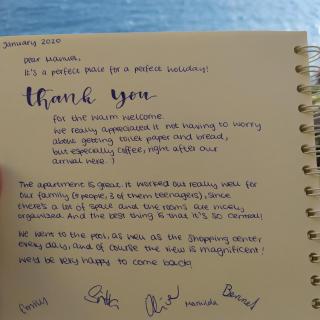 January 2020
Dear Manuel,
It's a perfect place for a perfect holiday!
thank you
for the warm welcome.
We really appreciated it not having to worry
about getting toilet paper and bread,
but especially coffee, right after our
arrival here. )
The apartment is great. It worked out really well for
our family (7 people, 3 of them teenagers), since
there's a lot of space and the rooms are nicely
organized. And the best thing is that it's so central!
We went to the pool, as well as the shopping center
every day, and of course the view is magnificent!
We'd be very happy to come back!
Emilys Oliver Matilda Bennet